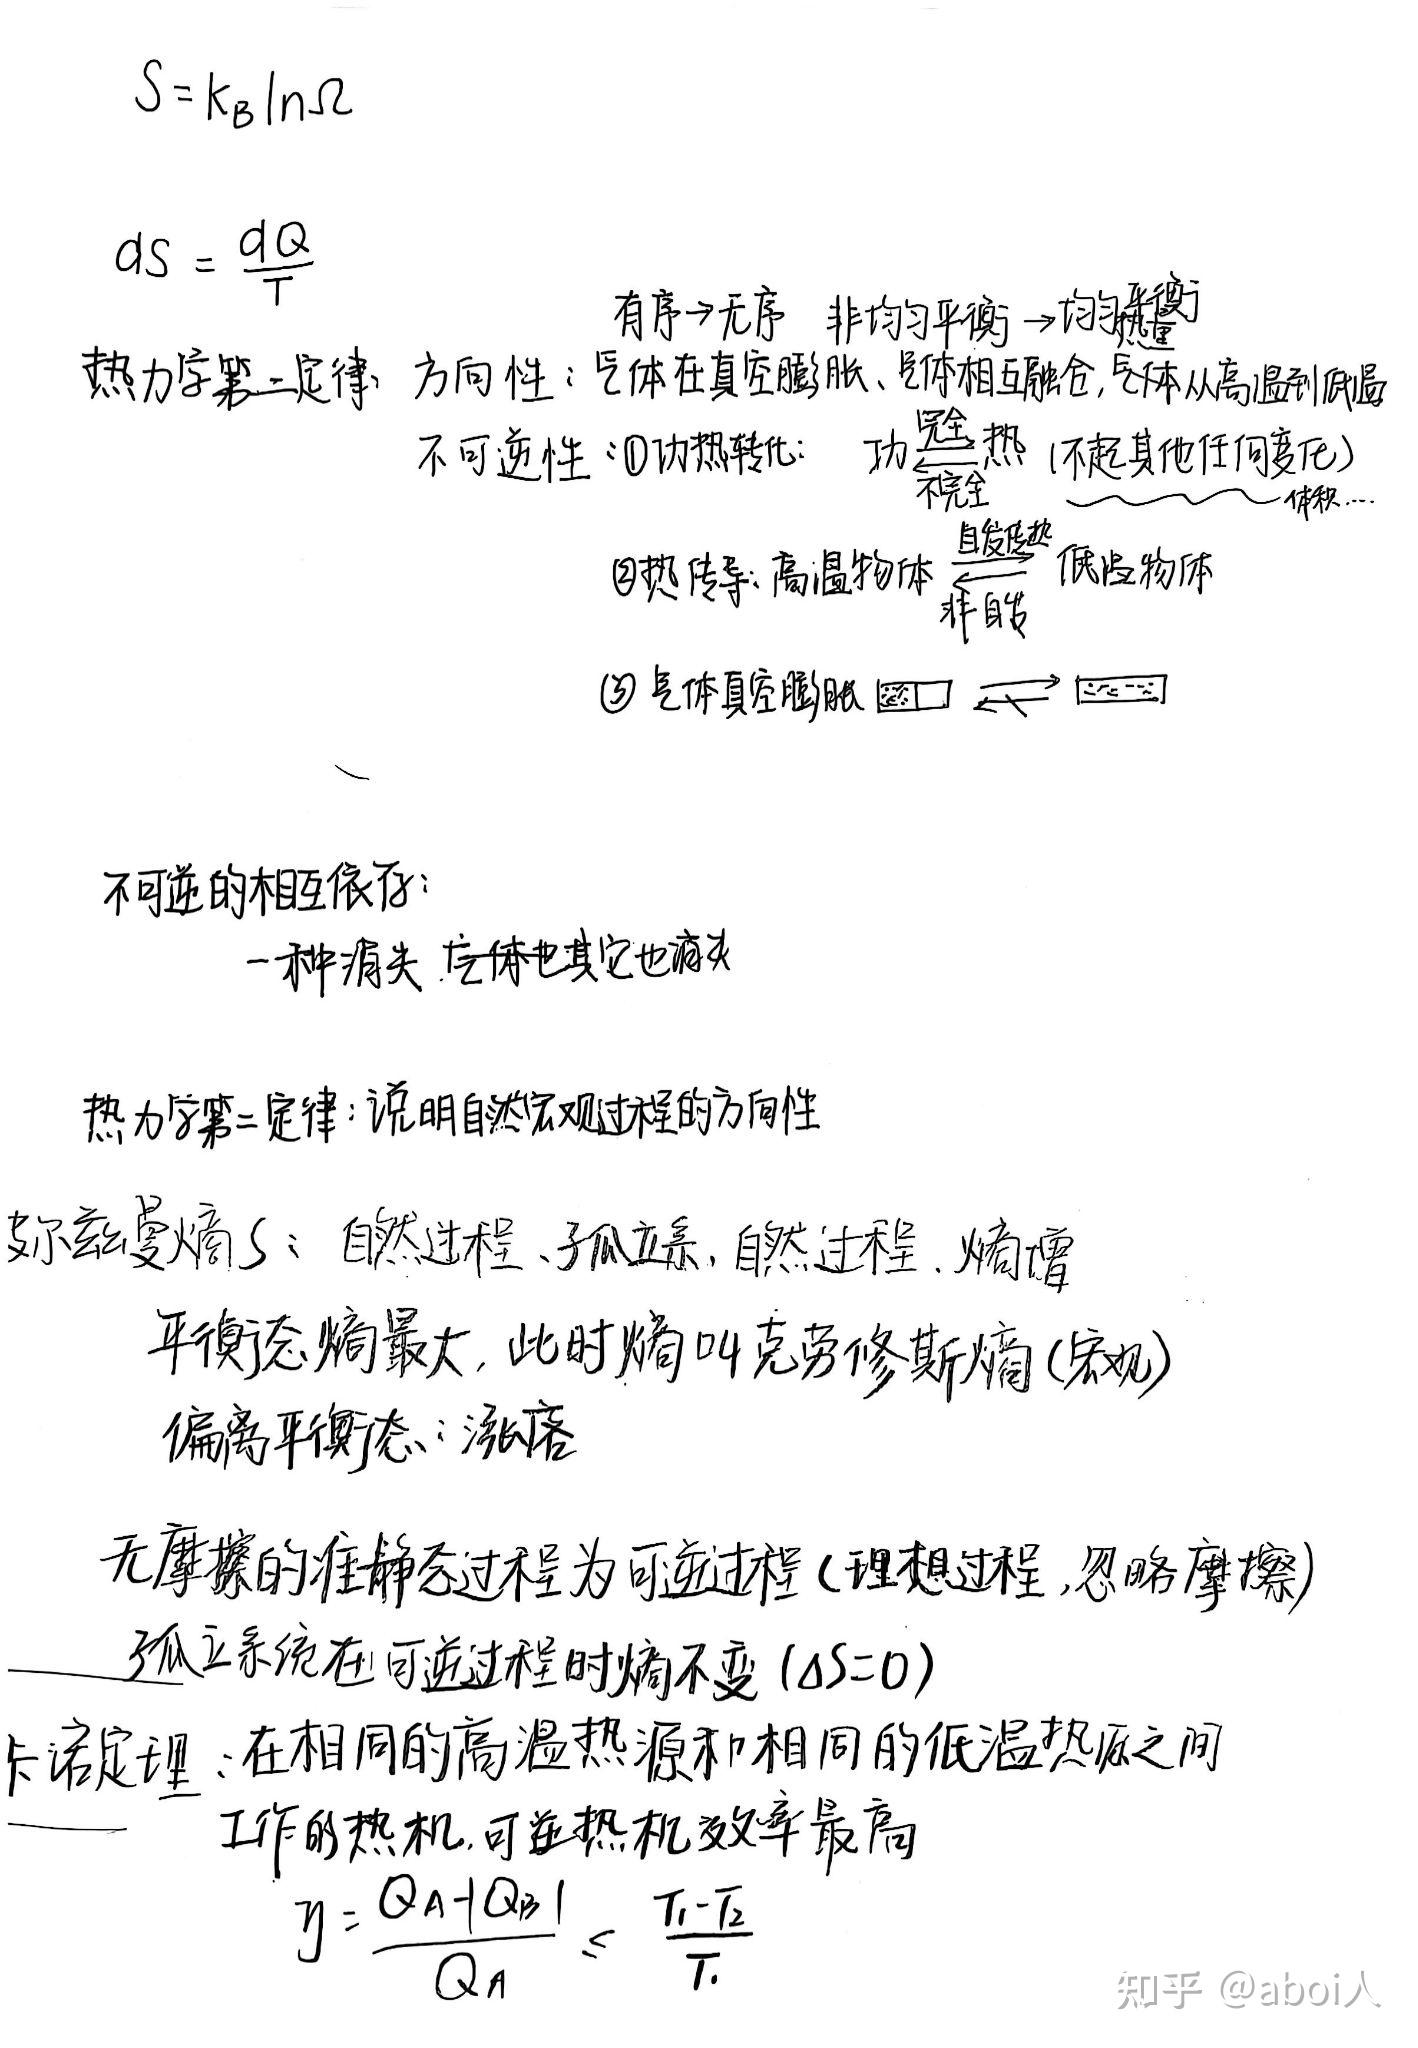 S=k_B lnΩ
dS = dQ/T
有序→无序 非均匀平衡→均匀平衡
热量
热力学第二定律: 方向性:气体在真空膨胀、气体相互融合,气体从高温到低温
不可逆性:①功热转化: 功 完全 ⇌ 不完全 热 (不起其他任何变化)
体积....
②热传导:高温物体 自发传热 ⇌ 非自发 低温物体
③气体真空膨胀
不可逆的相互依存:
一种消失 气体也其它也消失
热力学第二定律:说明自然宏观过程的方向性
玻尔兹曼熵S: 自然过程、孤立系,自然过程、熵增
平衡态熵最大,此时熵叫克劳修斯熵(宏观)
偏离平衡态:涨落
无摩擦的准静态过程为可逆过程(理想过程,忽略摩擦)
孤立系统在可逆过程时熵不变(ΔS=0)
卡诺定理:在相同的高温热源和相同的低温热源之间
工作的热机,可逆热机效率最高
η = (Q_A-|Q_B|)/Q_A ≤ (T₁-T₂)/T₁
知乎 @aboi人